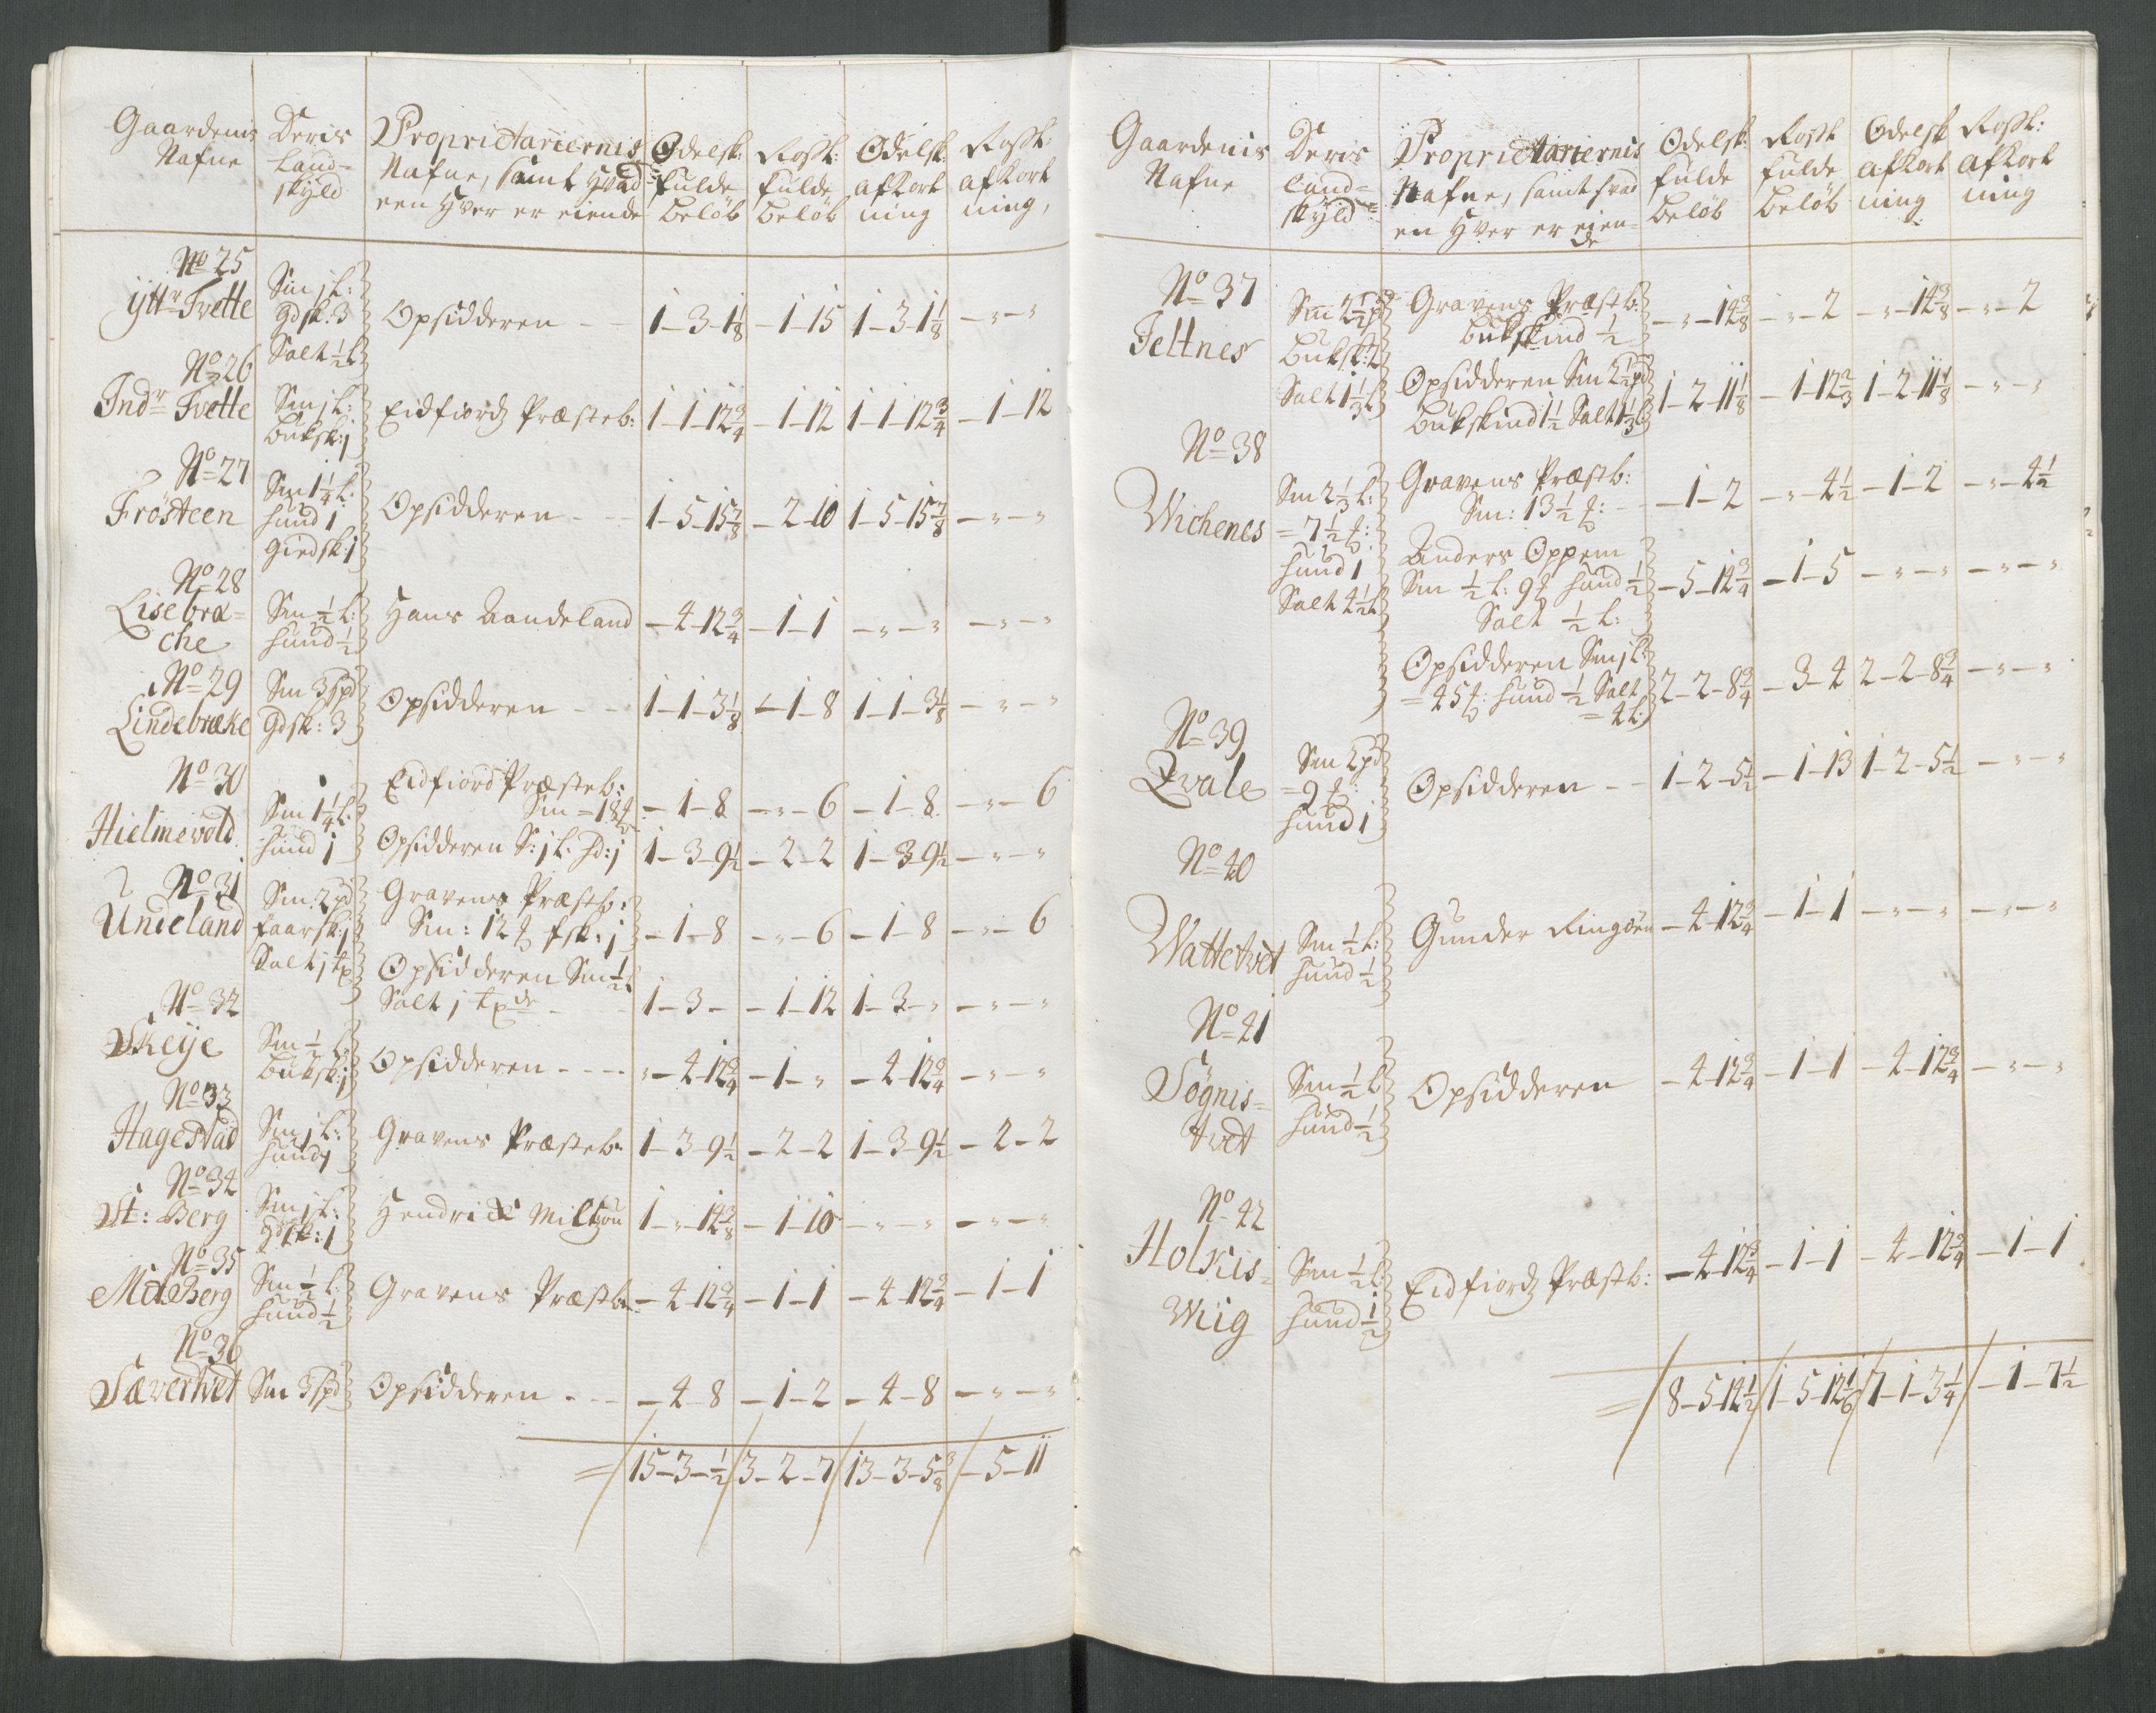 Gaardenis Nafne | Deris Land=skyld | Proprietariernis Nafne, samt hvad een hver er eiende | Odelsk: fulde Beløb | Rostk: fulde Beløb | Odelsk: afkort ning | Rostk: afkort ning,
No 25
Ÿttr Tvette | Sm j L: Gdsk: 3 Salt ½ L | Opsidderen - - | 1-3-1⅛ | -1-15 | 1-3-1⅛ | -"-"
No 26
Indr Tvette | Sm j L: Buksk: j | Eidfiord Præsteb: | 1-1-12¾ | -1-12 | 1-1-12¾ | -1-12
No 27
Trösteen | Sm 1¼ L: Huud 1 Giedsk: 1 | Opsidderen - - | 1-5-15⅞ | -2-10 | 1-5-15⅞ | -"-"
No 28
Lisebræ=che | Sm ½ L: Huud ½ | Hans Aandeland | -4-12¾ | -1-1 | -"-" | -"-"
No 29
Lindebræke | Sm 3 spd Gdsk: 3 | Opsidderen - - | 1-1-3⅛ | -1-8 | 1-1-3⅛ | -"-"
No 30
Hielmevold | Sm 1¼ L: Huud 1 | Eidfiord Præsteb:
Sm = 18 ℔ | -1-8 | -"-6 | -1-8 | -"-6
Opsidderen S: j L. Hd: j | 1-3-9½ | -2-2 | 1-3-9½ | -"-"
No 31
Undeland | Sm 2 pd faarsk: j Salt j tp | Gravens Præsteb:
Sm: 12 ℔ fsk: j | -1-8 | -"-6 | -1-8 | -"-6
Opsidderen Sm ½ L
Salt j tpde - | 1-3- | -1-12 | 1-3-" | -"-"
No 32
Skeÿe | Sm ½ L: Buksk: j | Opsidderen - - - - | "-4-12¾ | -1-" | -4-12¾ | -"-"
No 33
Hagestad | Sm j L: Huud 1 | Gravens Præsteb: | 1-3-9½ | -2-2 | 1-3-9½ | -2-2
No 34
St: Berg | Sm j L: Gdsk: 1 | Hendrich Miltzou | 1-"-14⅜ | -1-10 | -"-" | -"-"
No 35
Mdt Berg | Sm ½ L: Huud ½ | Gravens Præstb: | -4-12¾ | -1-1 | -4-12¾ | -1-1
No 36
Sævertvet | Sm 3 spd | Opsidderen - - - | -4-8 | -1-2 | -4-8 | -"-"
= / 15-3-½ / 3-2-7 / 13-3-5⅜ / -5-11
Gaardenis Nafne | Deris Land=skyld | Proprietariernis Nafne, samt hvad en hver er eien=de | Odelsk: fulde Beløb | Rostk fulde Beløb | Odelsk afkort ning | Rostk: afkort ning
No 37
Teltnes | Sm 2½ pd Buksk: 2 Salt 1⅓ L | Gravens Præstb:
Bukskind ½ | -"-14⅜ | -"-2 | -"-14⅜ | -"-2
Opsidderen Sm 2½ pd
Bukskind 1½ Salt 1⅓ L | 1-2-11⅛ | -1-12⅔ | 1-2-11⅛ | -"-"
No 38
Wichenes | Sm 2⅓ L: = 7½ ℔: Huud 1 Salt 4½ L | Gravens Præstb:
Sm: 13½ ℔: | -1-2 | -"-4½ | -1-2 | -"-4½
Anders Oppem
Sm ½ L: 9 ℔ Huud ½
Salt ½ L: | -5-14¾ | -1-5 | -"-" | -"-"
Opsidderen Sm j L:
= 45 ℔: Huud ½ Salt
= 4 L: | 2-2-8¾ | -3-4 | 2-2-8¾ | -"-"
No 39
Qvale | Sm 2 pd = 9 ℔: Huud 1 | Opsidderen - - | 1-2-5½ | -1-13 | 1-2-5½ | -"-"
No 40
Wattetvet | Sm ½ L: Huud ½ | Gunder Ringöen | -4-12¾ | -1-1 | -"-" | -"-"
No 41
Sögnis=tvet | Sm ½ L Huud ½ | Opsidderen | -4-12¾ | -1-1 | -4-12¾ | -"-"
No 42
Holkis=Wiig | Sm ½ L: Huud ½ | Eidfiord Præstb: | -4-12¾ | -1-1 | -4-12¾ | -1-1
= / 8-5-14½ / 1-5-12⅙ / 7-1-3¼ / -1-7½